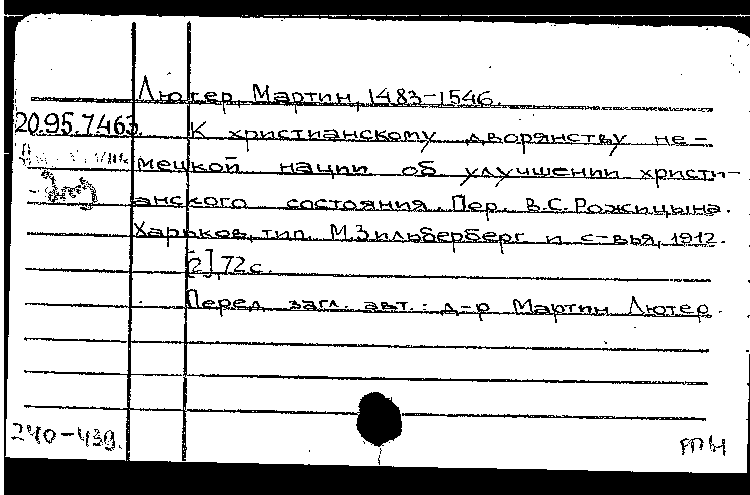 Лютер, Мартин, 1483-1546.
20.95.7463. К христианскому дворянству не-
мецкой нации об улучшении христи-
анского состояния. Пер. В.С. Рожицына.
Харьков, тип. М. Зильберберг и с-вья, 1912.
[2], 72 с.
Перед загл. авт.: д-р Мартин Лютер.
240-439.